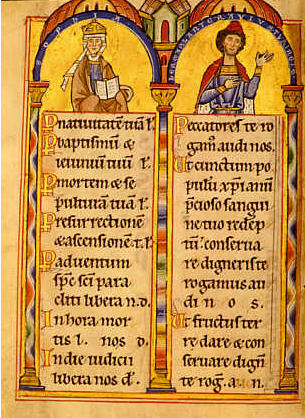 SOPHIA
P natiuitatē tuā l'.
P baptismū &
ieiuniū tuū l'.
P mortem & se
pulturā tuā l'.
P resurrectionē
& ascensionē t. l'.
P aduentum
spc̄ sc̄i para
cliti libera n. d.
In hora mor
tis l. nos d.
In die iudicii
libera nos d'.
Peccatores te ro
gam' audi nos.
Ut cunctum po
pulū xp̄ianū
p̄cioso sangui
ne tuo redēp
tū conserua
re digneris te
rogamus au
di n o s.
Ut fructus ter
re dare & con
seruare dign̄
te rog. a. n.